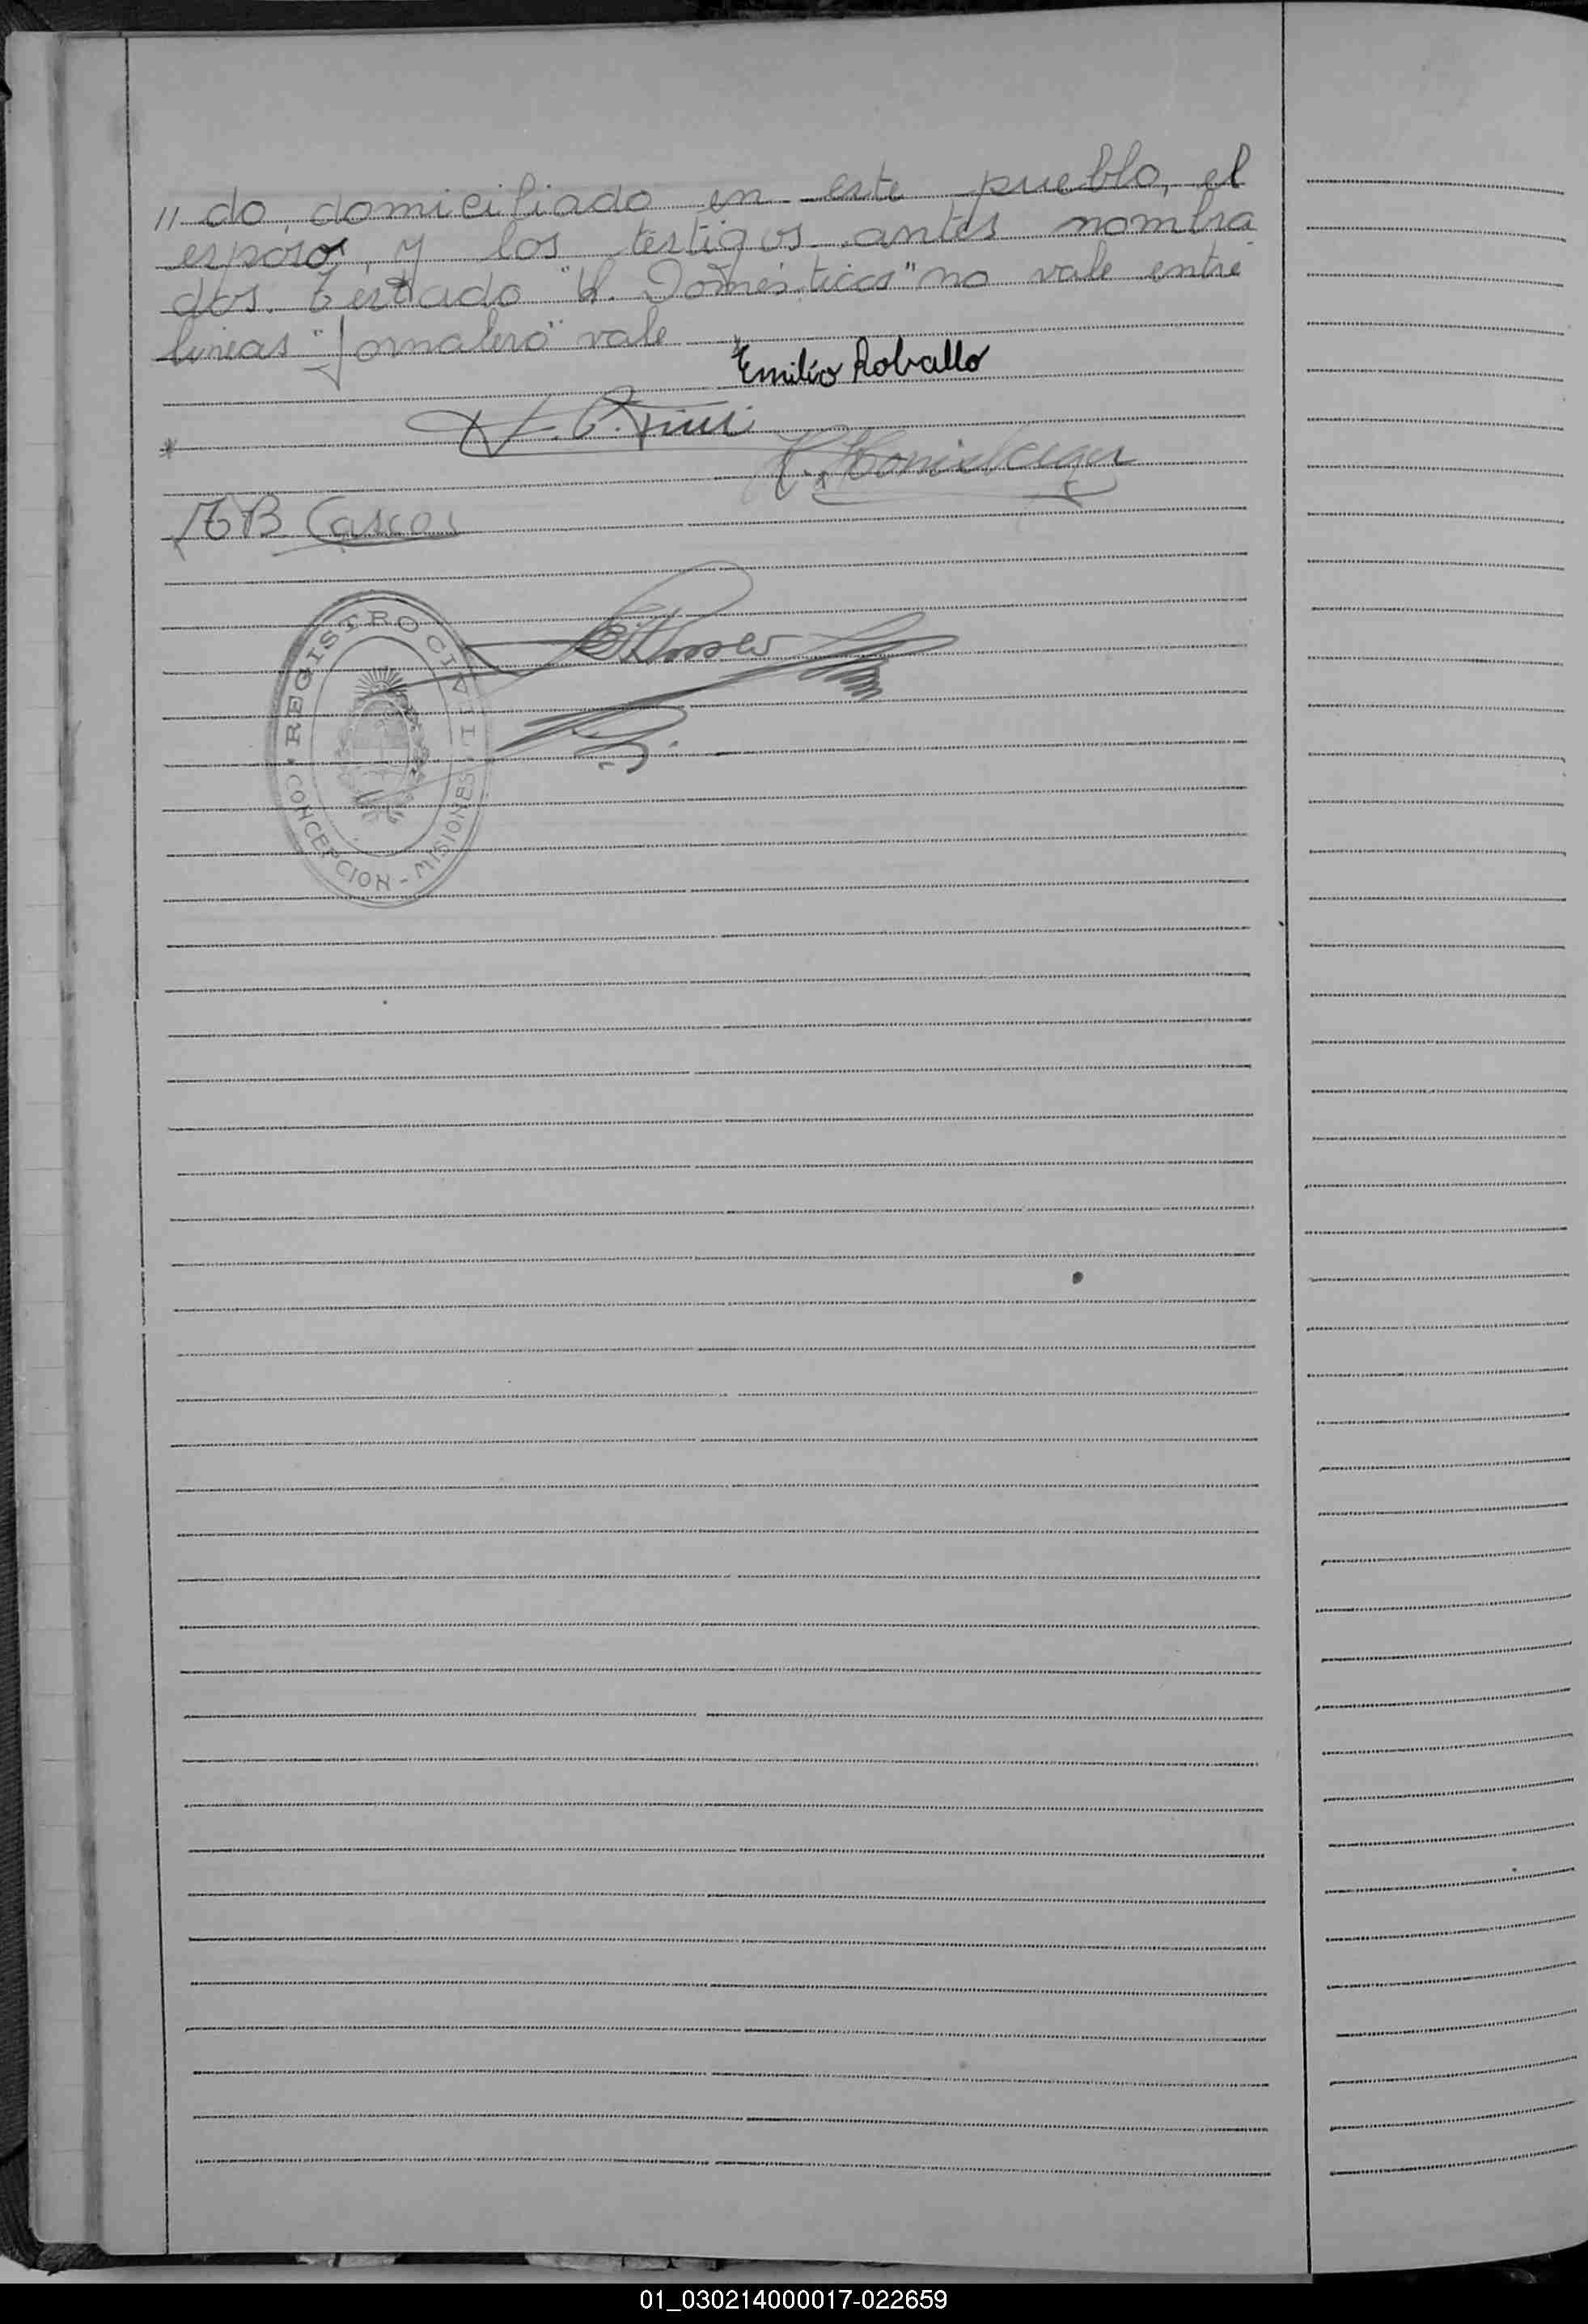 " do, domiciliado en este pueblo, el
esposo, y los testigos antes nombra
dos. Testado "Q. Domésticos" no vale entre
lineas "Jornalero" vale
Emilio Roballo
A B Cascos
REGISTRO CIVIL
CONCEPCION - MISIONES
01_030214000017-022659